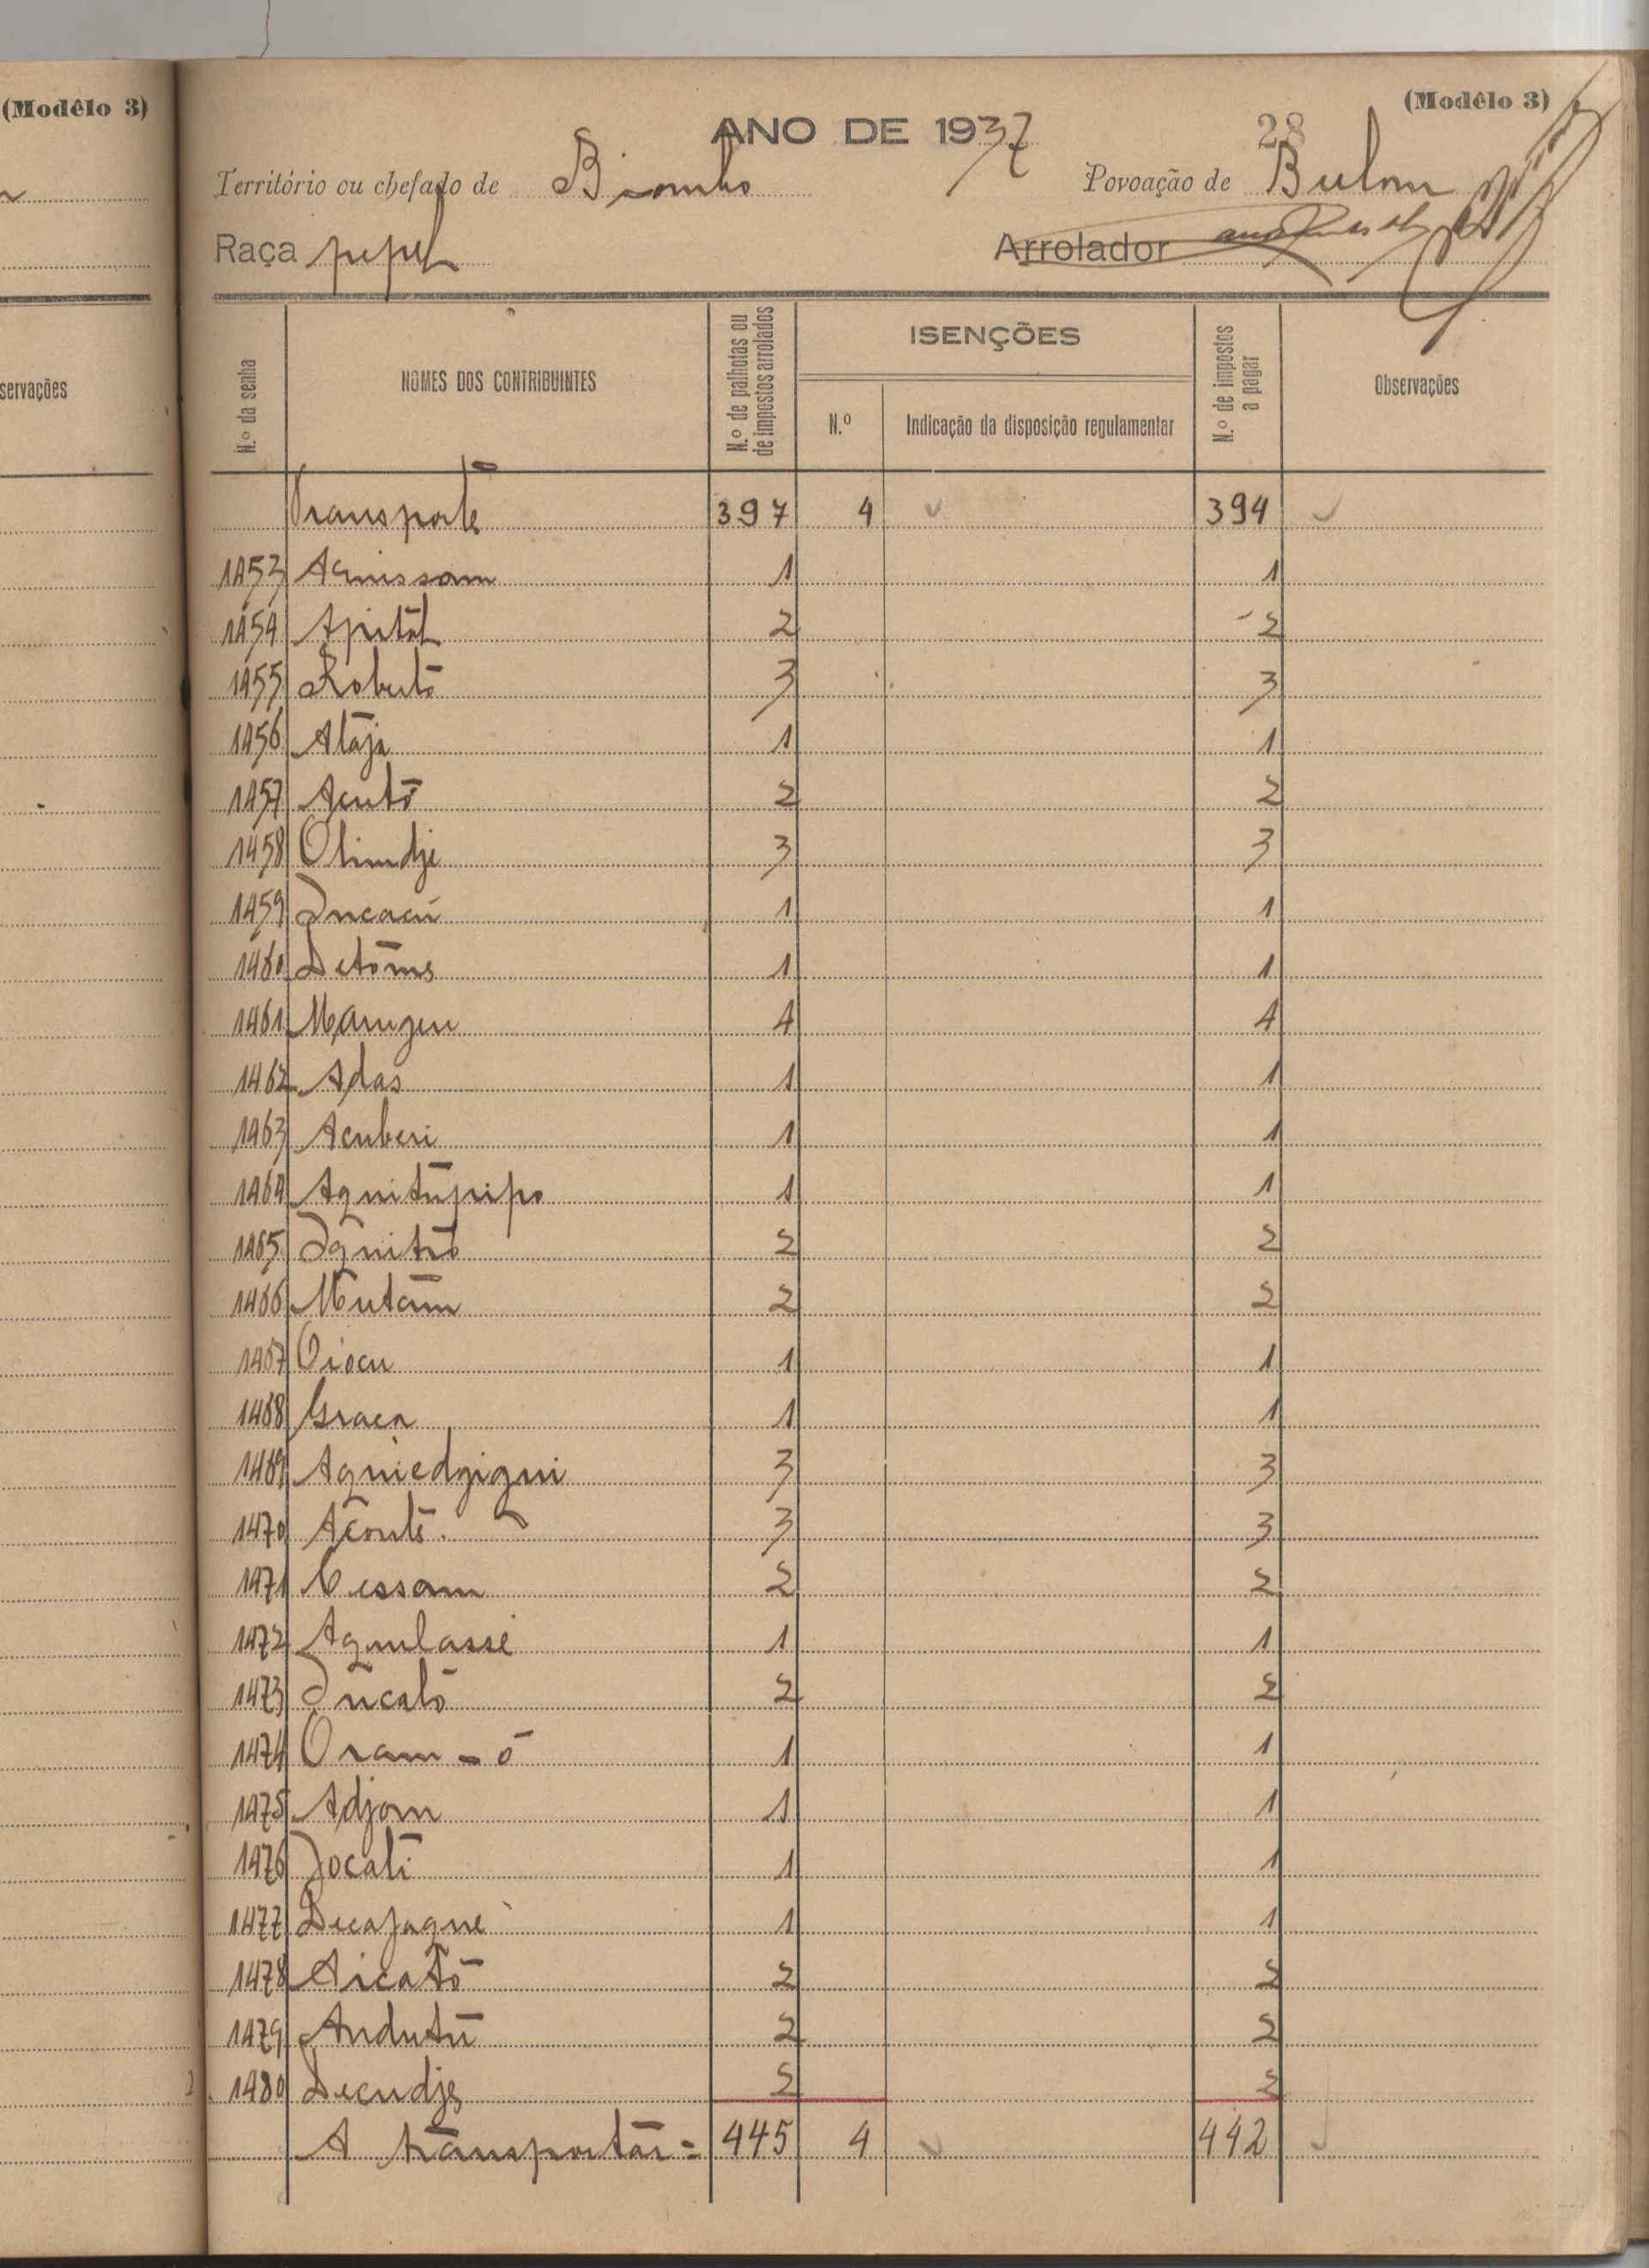 (Modêlo 3)
(Modêlo 3)
ANO DE 1937
28
Território ou chefado de Biombo Povoação de Bulom
Raça pepel Arrolador
servações
N.º da senha NOMES DOS CONTRIBUINTES N.º de palhotas ou de impostos arrolados ISENÇÕES N.º de impostos a pagar Observações
N.º Indicação da disposição regulamentar
Transporte 397 4 394
1453 1 1
1454 2 2
1455 Robertō 3 3
1456 Atāja 1 1
1457 Acutō 2 2
1458 Olimdje 3 3
1459 Incacú 1 1
1460 Detōms 1 1
1461 4 4
1462 Adas 1 1
1463 Acuberi 1 1
1464 Aquitūpipo 1 1
1465 2 2
1466 Mutām 2 2
1467 Oiocu 1 1
1468 Graca 1 1
1469 3 3
1470 3 3
1471 Cessam 2 2
1472 Aqulasse 1 1
1473 2 2
1474 Oram - ō 1 1
1475 Adjom 1 1
1476 Jocatī 1 1
1477 1 1
1478 2 2
1479 Andutū 2 2
1480 Decudje 2 2
A transportār = 445 4 442